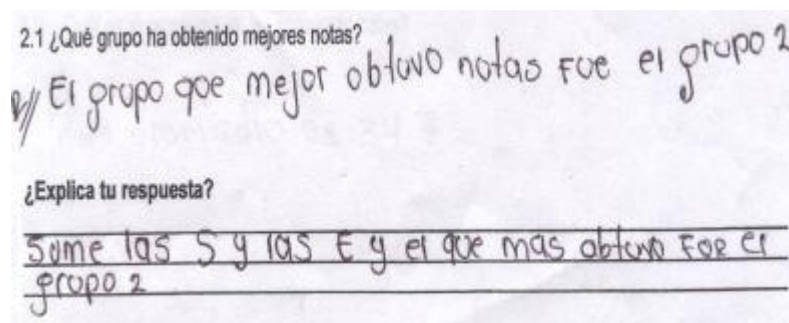 2.1 ¿Qué grupo ha obtenido mejores notas?
R// El grupo que mejor obtuvo notas fue el grupo 2
¿Explica tu respuesta?
Sume las S y las E y el que mas obtuvo Foe el
grupo 2